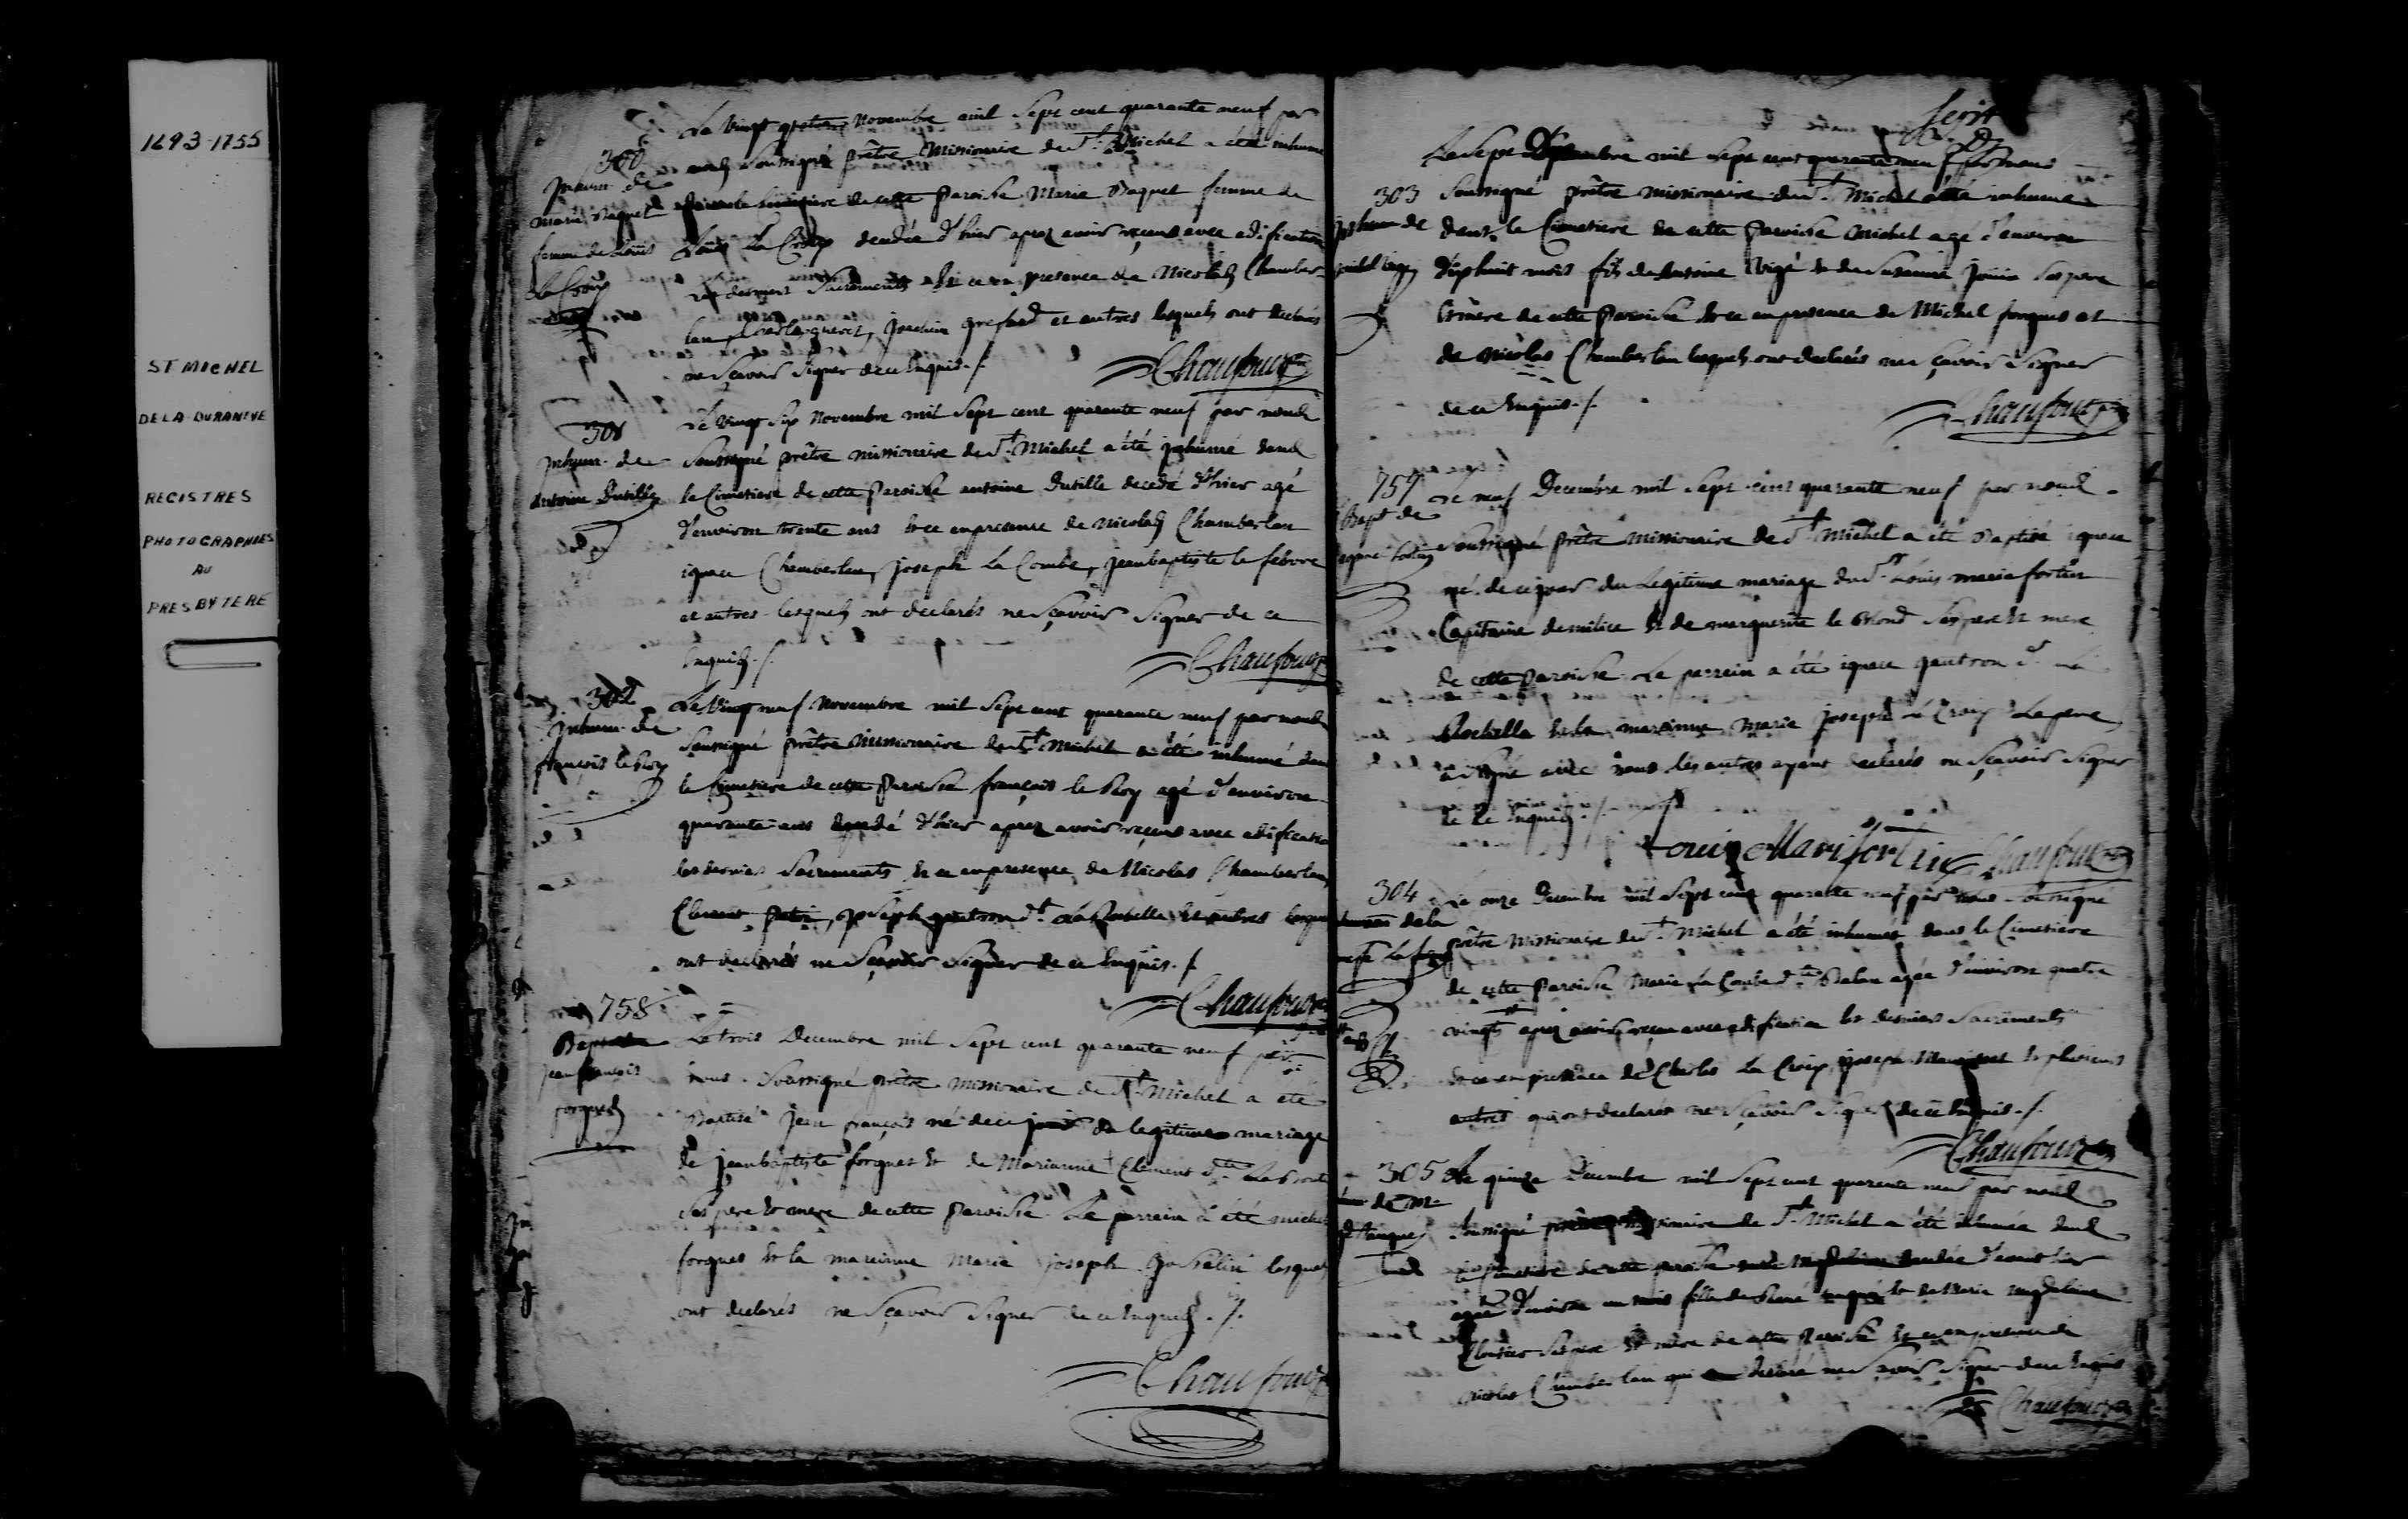 1693-1755
ST MICHEL
DE LA DURANTYE
REGISTRES
PHOTOGRAPHIES
AU
PRESBYTERE
300
Inhum. de
Marie Paquet
femme de Louis
La Croix
Le vingt quatre Novembre mil sept cent quarante neuf par
nous soussigné prêtre missionaire de St. Michel a été inhumé
dans le cimetiere de cette Paroisse Marie Paquet femme de
Louis La Croix decedée d'hier aprez avoir reçeus avec edification
les derniers sacrements et ce en presence de Nicolas Chamber-
lan, Joachim greffard et autres lesquels ont declarés
ne sçavoir signer de ce enquis./.
Chaufour
301
Inhum. de
Antoine Dutille
Le vingt six Novembre mil sept cent quarante neuf par nous
soussigné prêtre missionaire de St. Michel a été inhumé dans
le Cimetiere de cette Paroisse antoine Dutille decedé d'hier agé
d'environ trente ans et ce en presence de Nicolas Chamberlan
ignace Chamberlan, joseph La Combe, jean baptiste le febvre
et autres lesquels ont declarés ne sçavoir signer de ce
enquis./.
Chaufour
302
Inhum. de
françois le Roy
Le vingt neuf Novembre mil sept cent quarante neuf par nous
soussigné prêtre missionaire de St. Michel a été inhumé dans
le Cimetiere de cette Paroisse françois le Roy agé d'environ
quarante ans decedé d'hier aprez avoir reçeus avec edification
les derniers sacrements et ce en presence de Nicolas Chamberlan,
Clement, joseph gautron dt. La Rochelle et autres lesquels
ont declarés ne sçavoir signer de ce enquis./.
Chaufour
758
Bapt. de
jean françois
forgues
Le trois Decembre mil sept cent quarante neuf par
nous soussigné prêtre missionaire de St. Michel a été
Baptisé jean françois né de ce jour du legitime mariage
de jean baptiste forgues et de Marianne Clement dte.
ses pere et mere de cette Paroisse Le parrein a été michel
forgues et la mareinne Marie joseph gosselin lesquels
ont declarés ne sçavoir signer de ce enquis./.
Chaufour
303
Inhum. de
Le sept Decembre mil sept cent quarante neuf par nous
soussigné prêtre missionaire de St. Michel a été inhumé
dans le Cimetiere de cette Paroisse Michel agé d'environ
dixhuit mois fils de Antoine et de Susanne ses pere
et mere de cette Paroisse et ce en presence de Michel forgues et
de Nicolas Chamberlan lesquels ont declarés ne sçavoir signer
de ce enquis./.
Chaufour
759
Bapt. de
ignace fortin
Le neuf Decembre mil sept cent quarante neuf par nous
soussigné prêtre missionaire de St. Michel a été Baptisé ignace
né de ce jour du Legitime mariage du Sr. Louis marie fortin
Capitaine de milice et de marguerite le blond ses pere et mere
de cette Paroisse Le parrein a été ignace gautron dt. La
Rochelle et la mareinne marie joseph La Croix Le pere
a signé avec nous les autres ayant declarés ne sçavoir signer
de ce enquis./.
Louis Mari fortin Chaufour
304
Le onze Decembre mil sept cent quarante neuf par nous soussigné
prêtre missionaire de St. Michel a été inhumée dans le Cimetiere
de cette Paroisse Marie La Combe dte. Balan agée d'environ quatre
vingts aprez avoir reçeu avec edification les derniers sacrements
et ce en presence de Charles La Croix, joseph et plusieurs
autres qui ont declarés ne sçavoir signer de ce enquis./.
Chaufour
305
Le quinze Decembre mil sept cent quarante neuf par nous
soussigné prêtre missionaire de St. Michel a été inhumée dans
le Cimetiere de cette paroisse decedée d'avant hier
agée d'environ un mois fille de et de Marie magdeleine
ses pere et mere de cette Paroisse et ce en presence de
Nicolas Chamberlan qui a declaré ne sçavoir signer de ce enquis
Chaufour